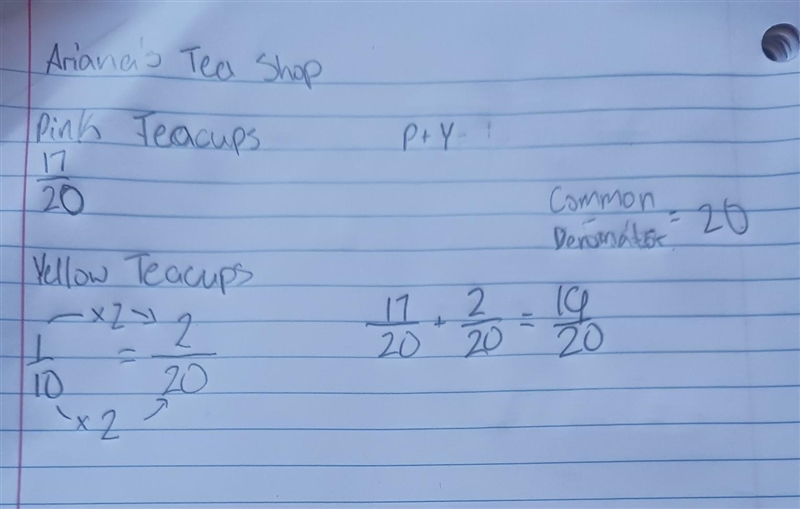 Ariana's Tea Shop
Pink Teacups
17/20
P+Y
Common Denomator = 20
Yellow Teacups
×2
1/10 = 2/20
×2
17/20 + 2/20 = 19/20